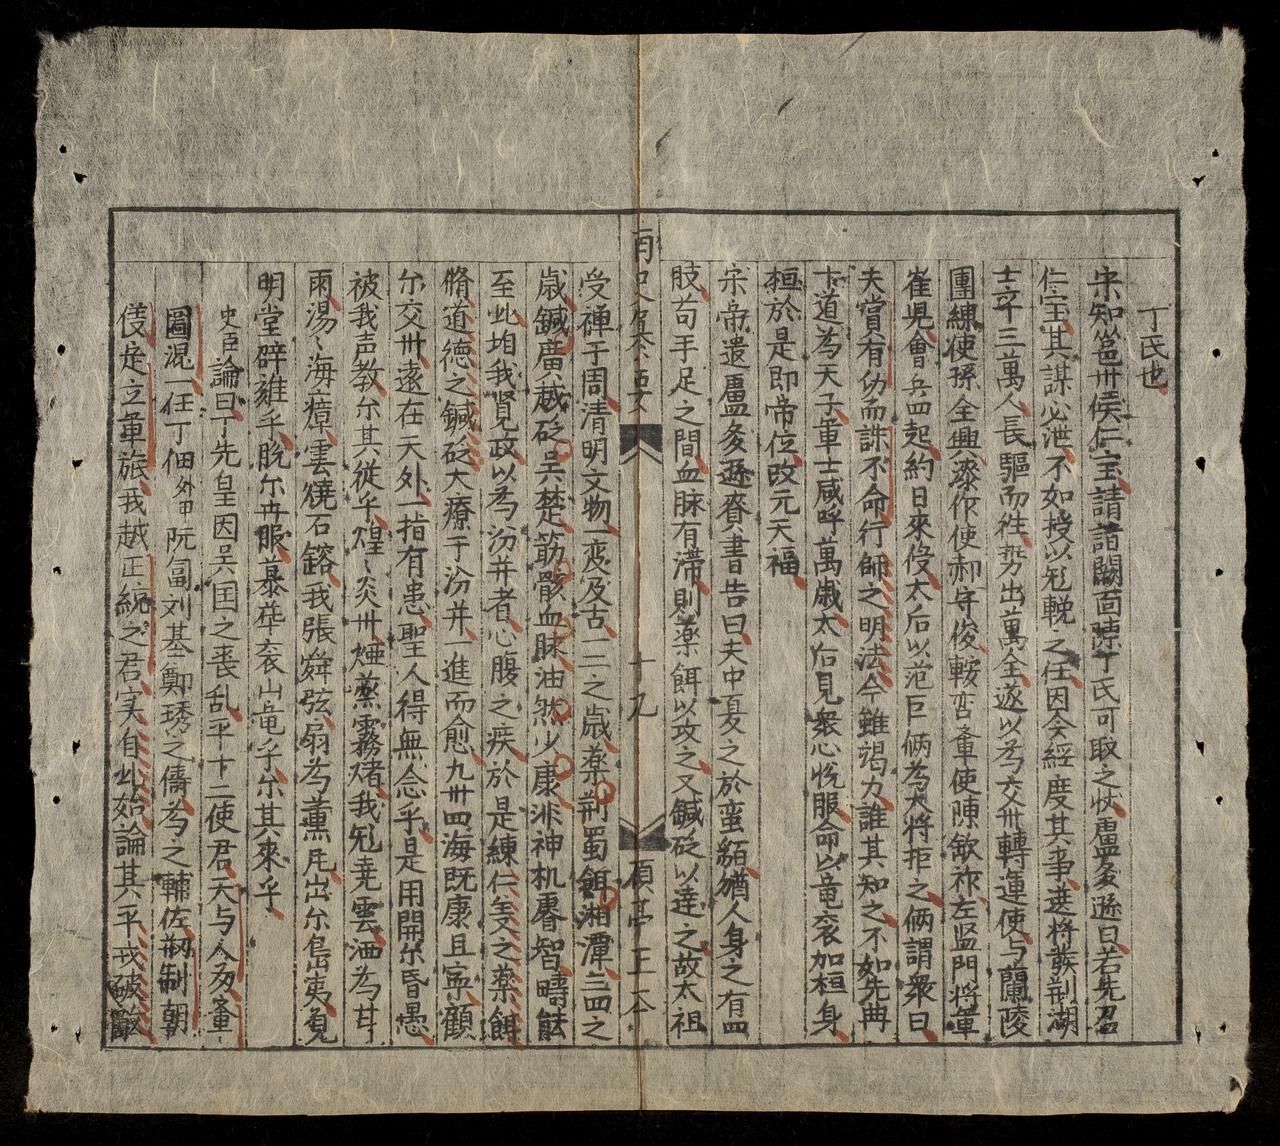 丁氏也
宋知邕州侯仁宝請詣闕面陳丁氏可取之状盧多遜曰若先召
仁宝其謀必泄不如授以兵輓之任因令經度其事進將襲荆湖
士卒三萬人長驅而徃势出萬全遂以為交州轉運使与蘭陵
團練使孫全興漆作使郝守俊鞍轡軍使陳欽祚左监門將軍
崔亮會兵四起約日來侵太后以范巨俩為大將拒之俩謂衆曰
夫賞有功而誅不命行師之明法今雖竭力誰其知之不如先冊
十道為天子軍士咸呼萬歲太后見衆心悦服命以竜衮加桓身
桓於是即帝位改元天福
宋帝遣盧多遜賫書告曰夫中夏之於蛮貊猶人身之有四
肢苟手足之間血脉有滞則藥餌以攻之又鍼砭以達之故太祖
史祭 十九 亭 正本
受禅于周清明文物一変及古一二之歲藥荆蜀餌湘潭三四之
歲鍼廣越砭吴楚筋骸血脉油然少康非神机睿智疇能
至此洎我賢政以為汾并者心腹之疾於是練仁義之藥餌
脩道德之鍼砭大療于汾并一進而愈九州四海既康且寧顧
尔交州遠在天外一指有患聖人得無念乎是用開尔昏愚
被我声教尔其從乎煌〻炎州烟蒸霧煮我兎堯雲洒為甘
雨湯〻海瘴雲燒石鎔我張舜弦扇為薫風出尔島夷負
明堂辟雍乎脱尔卉服慕華衮山竜乎尔其來乎
史臣論曰丁先皇因吴囯之丧乱平十二使君天与人歸
圖混一任丁佃外甲阮匐刘基鄭琇之儔為之輔佐剏制朝
儀定立軍旅我越正統之君実自此始論其平戎破敵